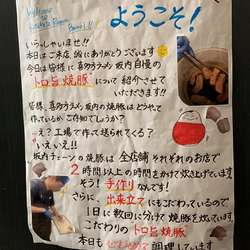 Welcome to
ようこそ!
いらっしゃいませ!!
本日はご来店 誠にありがとうございます
今日は皆様に 喜多方ラーメン 坂内自慢の
トロ旨焼豚 について 紹介させて
いただきます!!
皆様、喜多方ラーメン 坂内の焼豚はどうやって
作っているかご存知でしょうか?
え?工場で作って送られてくる?
いえいえ!!
坂内チェーンの焼豚は 全店舗それぞれのお店で
2時間以上の時間をかけて炊き上げています
そう!手作りなんです!
さらに、出来立てにもこだわっているので
1日に数回に分けて焼豚を炊いています
こだわりのトロ旨焼豚
本日も 調理しています